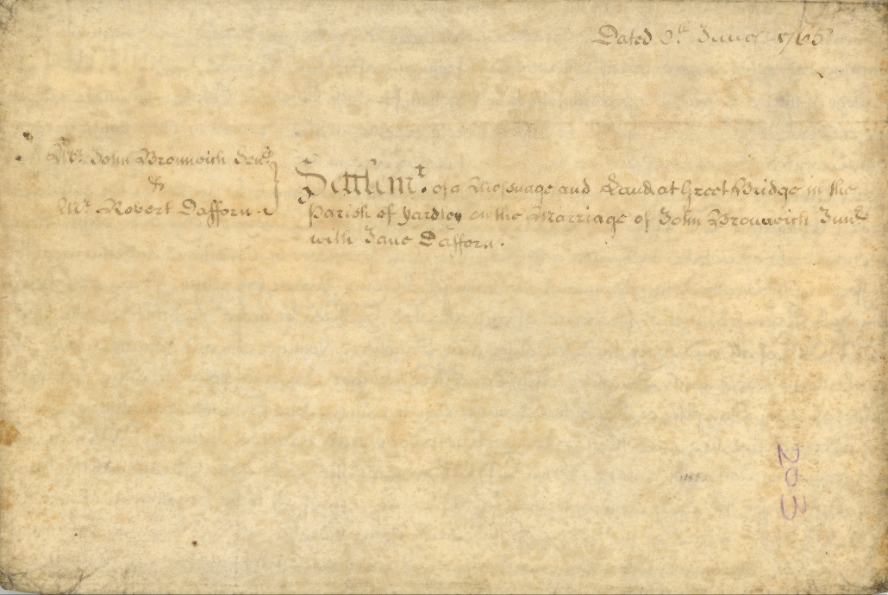 Dated 9th June 1765
Mr. John Bromwich Senr.
&
Mr. Robert Dafforn
Settlemt. of a Messuage and Lands at Greet Bridge in the
Parish of Yardley on the Marriage of John Bromwich Junr.
with Jane Dafforn.
203